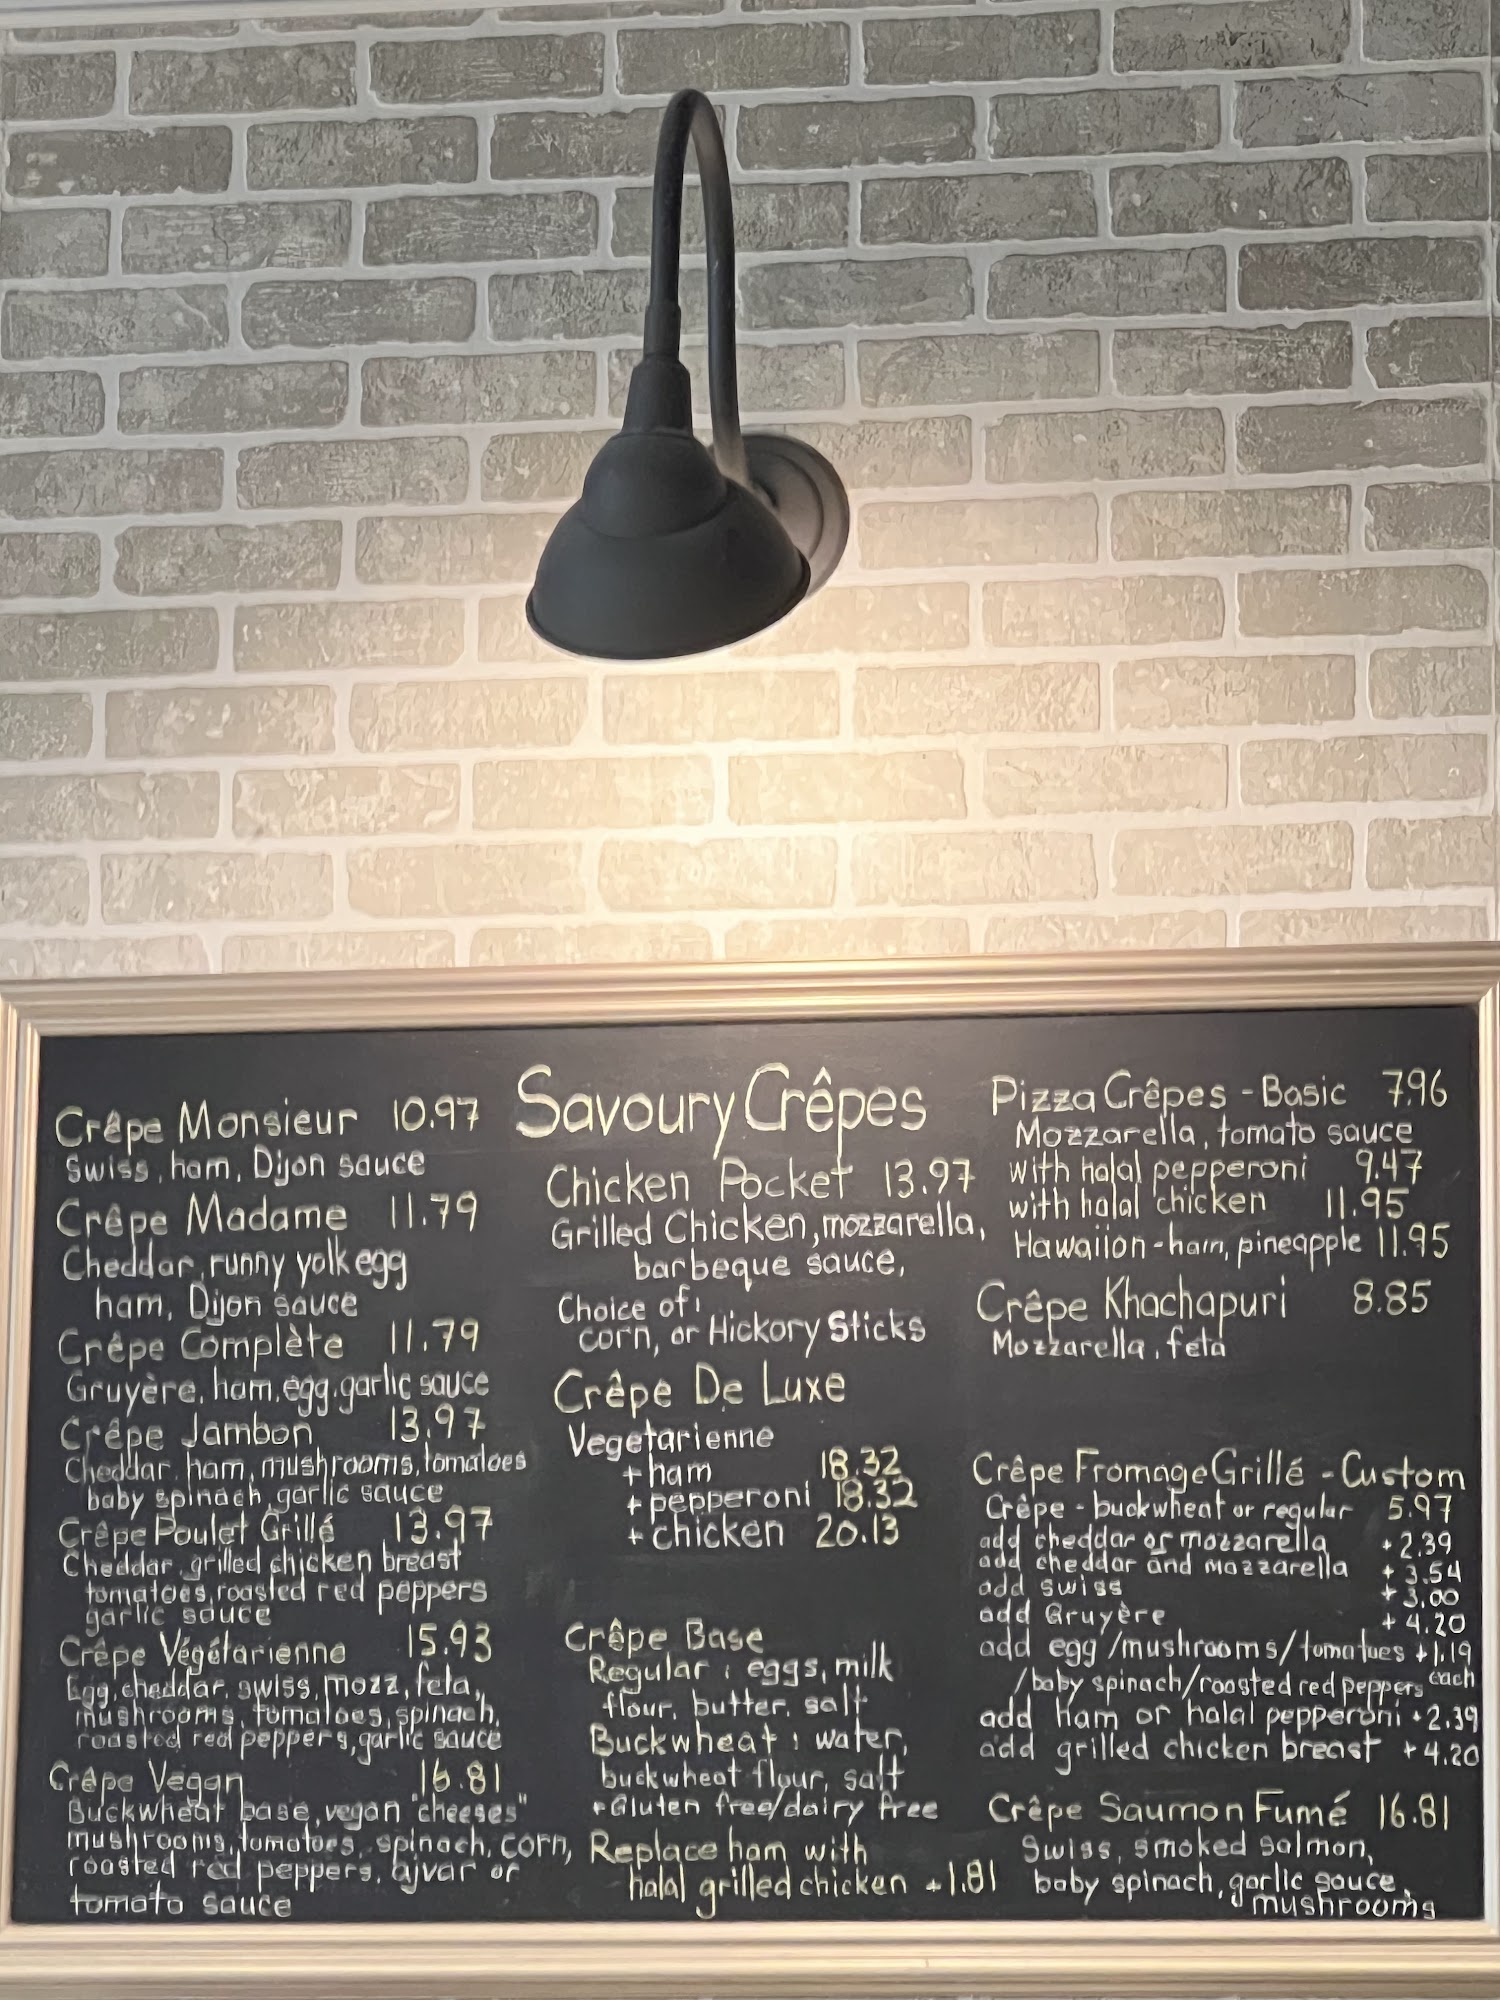 Savoury Crêpes
Crêpe Monsieur 10.97
Swiss, ham, Dijon sauce
Crêpe Madame 11.79
Cheddar, runny yolk egg
ham, Dijon sauce
Crêpe Complète 11.79
Gruyère, ham, egg, garlic sauce
Crêpe Jambon 13.97
Cheddar, ham, mushrooms, tomatoes
baby spinach, garlic sauce
Crêpe Poulet Grillé 13.97
Cheddar, grilled chicken breast
tomatoes, roasted red peppers
garlic sauce
Crêpe Végétarienne 15.93
Egg, cheddar, swiss, mozz, feta,
mushrooms, tomatoes, spinach,
roasted red peppers, garlic sauce
Crêpe Vegan 16.81
Buckwheat base, vegan "cheeses"
mushrooms, tomatoes, spinach, corn,
roasted red peppers, ajvar or
tomato sauce
Chicken Pocket 13.97
Grilled Chicken, mozzarella,
barbeque sauce,
Choice of:
corn, or Hickory Sticks
Crêpe De Luxe
Vegetarienne
+ ham 18.32
+ pepperoni 18.32
+ chicken 20.13
Crêpe Base
Regular: eggs, milk
flour, butter, salt
Buckwheat: water,
buckwheat flour, salt
+Gluten free/dairy free
Replace ham with
halal grilled chicken +1.81
Pizza Crêpes - Basic 7.96
Mozzarella, tomato sauce
with halal pepperoni 9.47
with halal chicken 11.95
Hawaiion - ham, pineapple 11.95
Crêpe Khachapuri 8.85
Mozzarella, feta
Crêpe Fromage Grillé - Custom
Crêpe - buckwheat or regular 5.97
add cheddar or mozzarella +2.39
add cheddar and mozzarella +3.54
add swiss +3.00
add Gruyère +4.20
add egg/mushrooms/tomatoes +1.19
/baby spinach/roasted red peppers each
add ham or halal pepperoni +2.39
add grilled chicken breast +4.20
Crêpe Saumon Fumé 16.81
Swiss, smoked salmon,
baby spinach, garlic sauce,
mushrooms